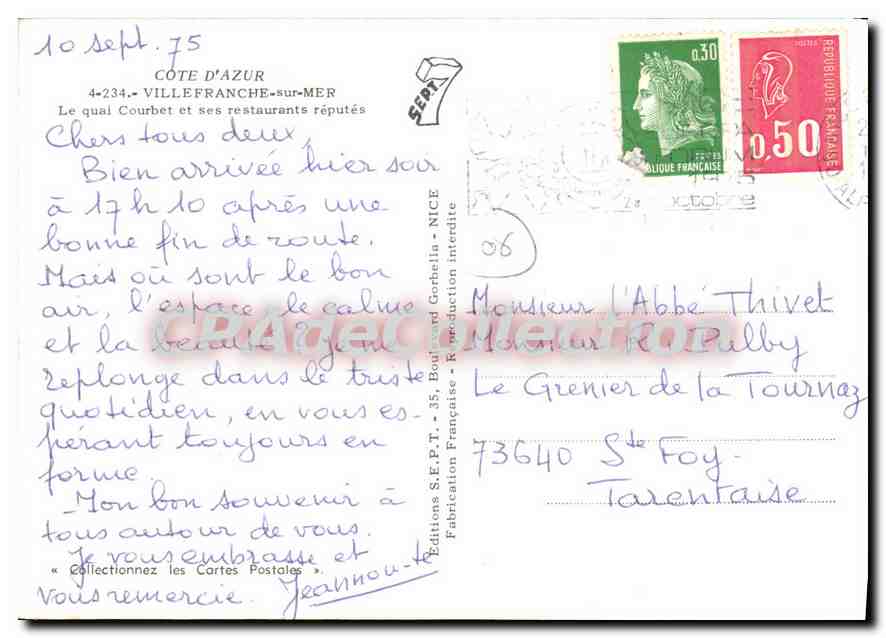 10 sept. 75
COTE D'AZUR
4-234.- VILLEFRANCHE-sur-MER
Le quai Courbet et ses restaurants réputés
Chers tous deux,
Bien arrivée hier soir
à 17h10 après une
bonne fin de route.
Mais où sont le bon
air, l'espace, le calme
et la beauté? Je me
replonge dans le triste
quotidien, en vous es-
pérant toujours en
forme.
Mon bon souvenir à
tous autour de vous.
Je vous embrasse et
« Collectionnez les Cartes Postales ».
vous remercie. Jeannou-te
SEPT
7
Editions S.E.P.T. - 35, Boulevard Gorbella - NICE
Fabrication Française - Reproduction interdite
0,30
POSTES
RÉPUBLIQUE FRANÇAISE
POSTES
REPUBLIQUE FRANÇAISE
0,50
octobre
06
Monsieur l'Abbé Thivet
Monsieur R. Pulby
Le Grenier de la Tournaz
73640 Ste Foy-
Tarentaise
CPAdeCollection